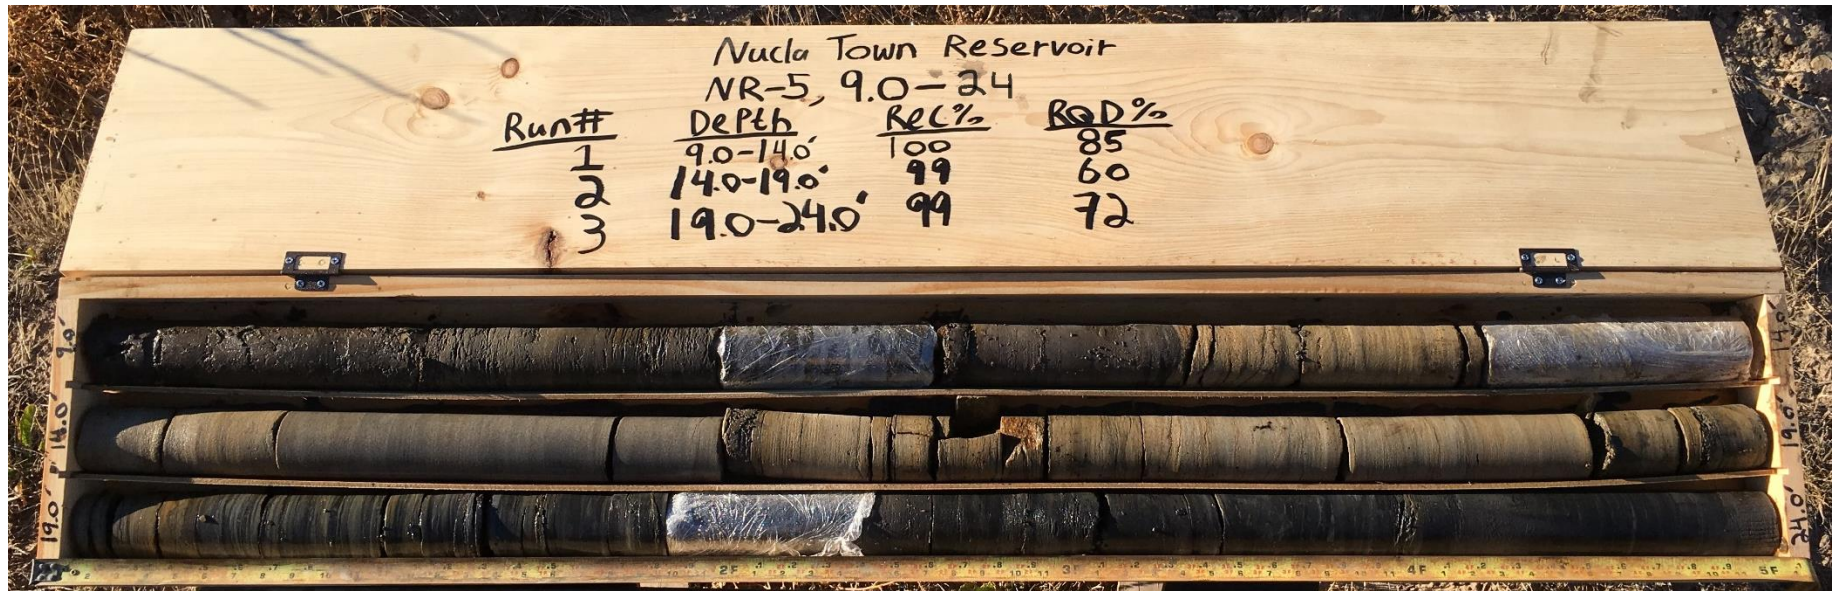 Nucla Town Reservoir
NR-5, 9.0-24
Run# Depth Rec% RQD%
1 9.0-14.0' 100 85
2 14.0-19.0' 99 60
3 19.0-24.0' 99 72
9.0' 14.0
14.0' 19.0'
19.0' 24.0'
2F 3F 4F 5F